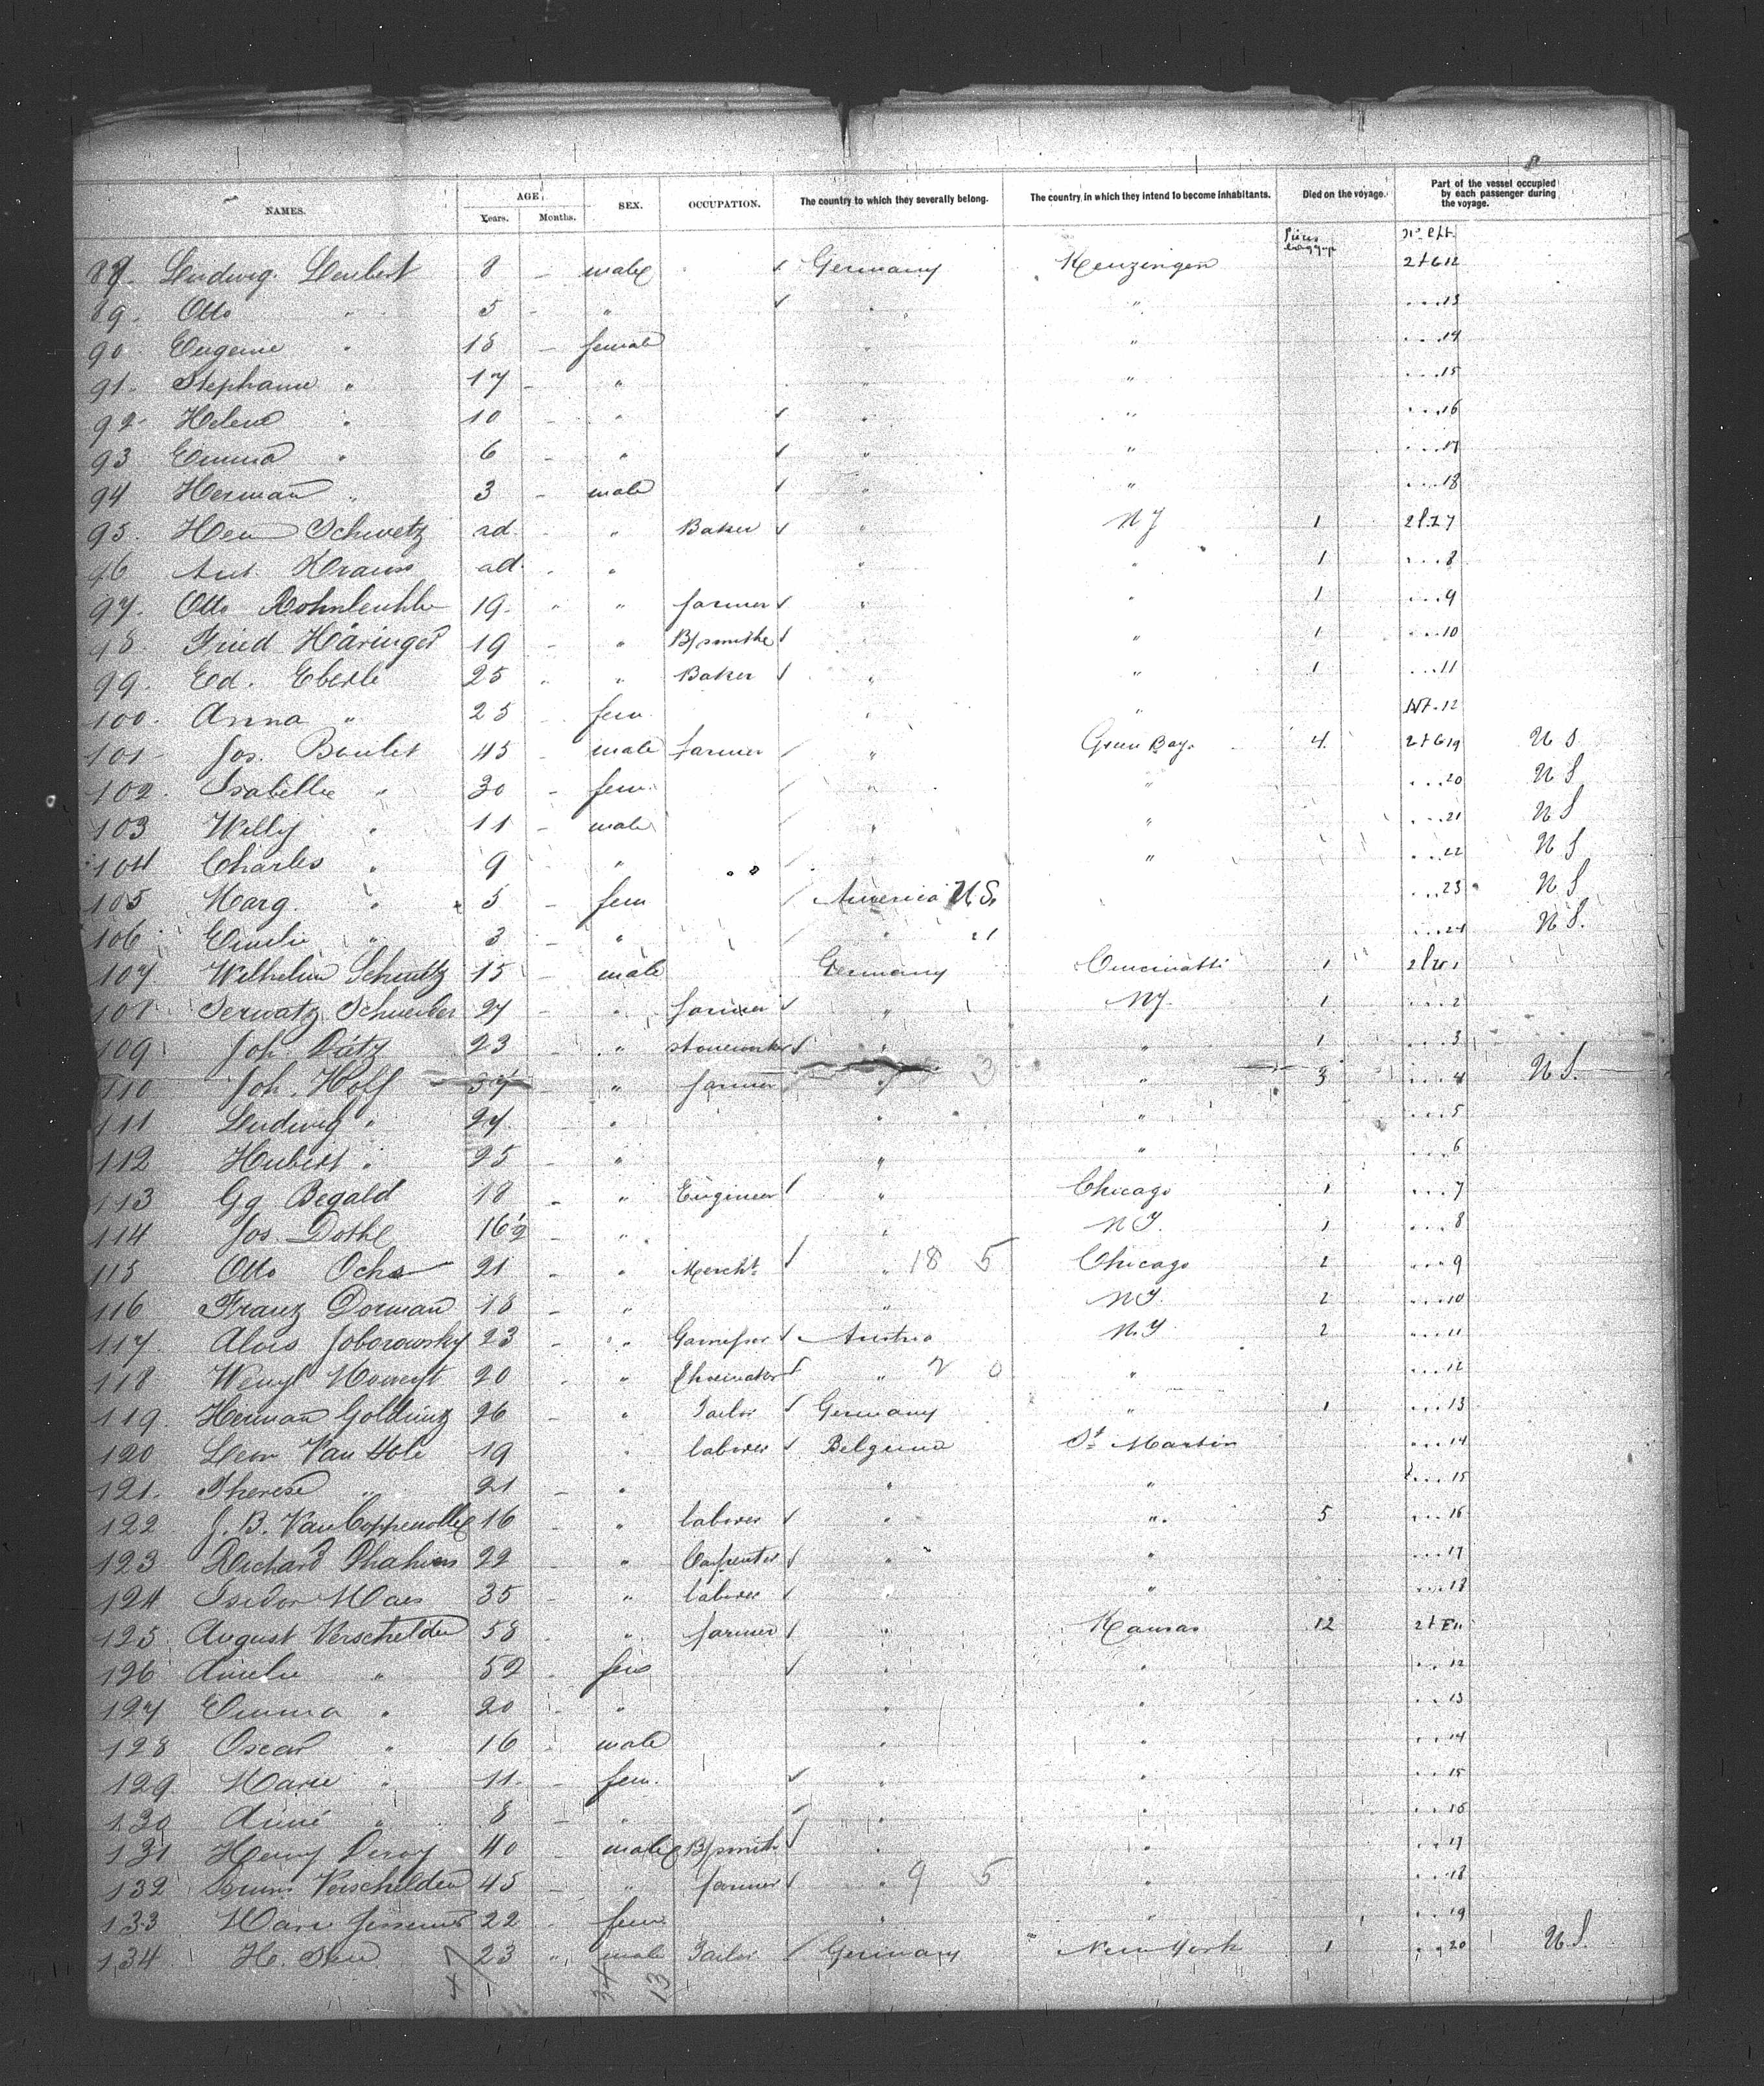 NAMES. AGE, Years. Months. SEX. OCCUPATION. The country to which they severally belong. The country in which they intend to become inhabitants. Died on the voyage. Part of the vessel occupied by each passenger during the voyage.
Pieces baggage
88. Ludwig Leubert 8 - male Germany Kenzingen 2t612
89. Otto " 5 - " " " 13
90 Eugenie " 18 - female " " 14
91. Stephanie " 17 - " " " 15
92. Helene " 10 - " " " 16
93 Emma " 6 - " " " 17
94 Herman " 3 - male " " 18
95. Schwetz ad. - " Baker " NY 1
96 Ant. Krauss ad. " " " 1 8
97. Otto 19. " " farmer " " 1 9
98. Fried Häringer 19 - " Bl smithe " " 1 10
99. Ed. Eberle 25 " " Baker " " 1 11
100. Anna " 25 - fem. " " 12
101 Jos. Boulet 45 - male farmer " Green Bay. 4. 2t619 U S
102. Isabelle " 30 - fem. " " 20 U S
103 Willy " 11 - male " " 21 U S
104 Charles " 9 - " " 22 U S
105 Marg. " 5 - fem America U.S. 23 U S
106 " 3 - " " " 24 U S.
107. Wilhelm Schultz 15 - male Germany Cincinatti 1
108. Servatz Schreiber 27 - " farmer " NY. 1 2
109 Joh. Dätz 23 - " stoneworker " " 1 3
110 Joh. Hoff 37 " farmer " 3 " 3 4 U S.
111 Ludwig " 27 - " " " 5
112 Hubert " 25 - " " " 6
113 Gg Begald 18 - " Engineer " Chicago 1 7
114 Jos. Dothe 16½ " " NY. 1 8
115 Otto Ochs 21 - " Mercht. " 18 5 Chicago 2 9
116 Franz Dorman 18 - " " NY. 2 10
117. Alois Joborowsky 23 " Austria N.Y 2 11
118 20 - " Shoemaker " 2 0 " 12
119. Herman 26 - " Tailor Germany " 1 13
120 Leon Van Hole 19 " laborer Belgium St. Martin 14
121. Therese " 21 - " " " 15
122 J. B. Van Coppenolle 16 " laborer " 5 16
123 Richard 22 - " Carpenter " " 17
124 Isidor Maes 35 - " laborer " " 18
125. August Verschelden 58 - " farmer " Kansas 12
126 Amelie " 52 - fem " " 12
127 Emma " 20 - " " " 13
128 Oscar " 16 - male " " 14
129. Marie " 11. - fem. " " 15
130 " 8 - " " " 16
131 Henry Deroy 40 - male Bl smith " " 17
132 Verschelden 45 - " farmer " 9 5 " 18
133 Marie 22 - fem. " " 19
134 H. 23 " male Tailor Germany New York 1 20 U S.
47 34 13